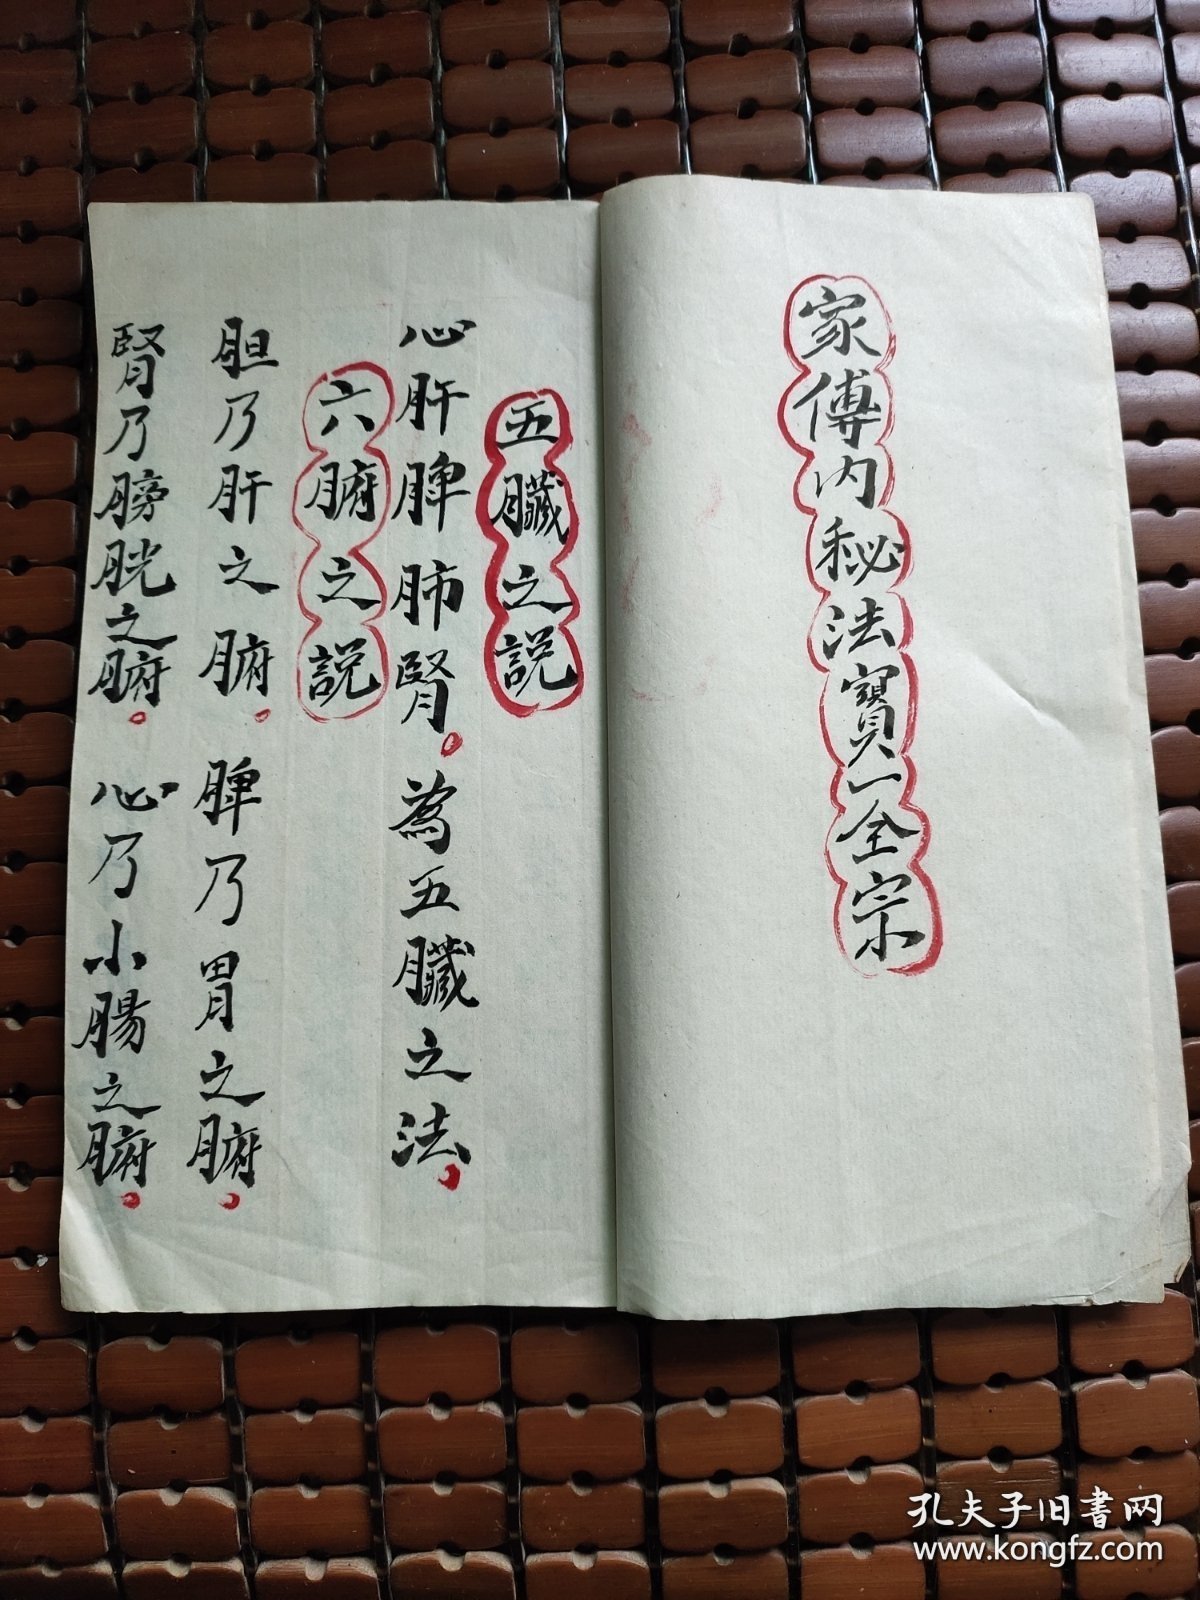 家傳内秘法寶一全宗
五臟之説
心肝脾肺腎。為五臟之法。
六腑之説
胆乃肝之腑。脾乃胃之腑。
腎乃膀胱之腑。心乃小腸之腑。
孔夫子旧書网
www.kongfz.com